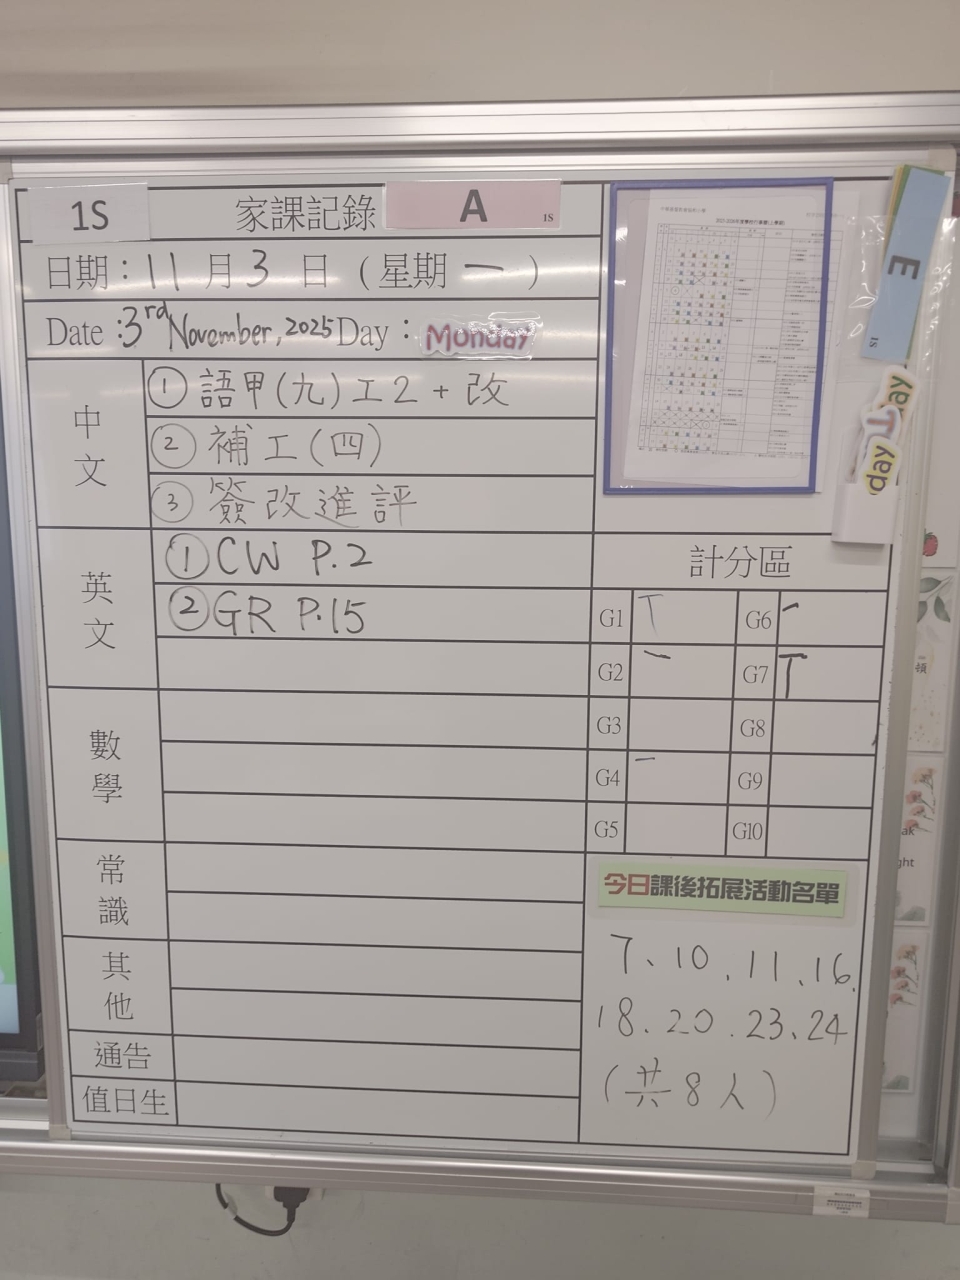 1S 家課記錄 A 1S
日期：11月3日（星期一）
Date：3rd November, 2025 Day：Monday
中文
①語甲(九)工2+改
②補工(四)
③簽改進評
英文
①CW P.2
②GR P.15
數學
常識
其他
通告
值日生
E
1S
計分區
G1 T G6 一
G2 一 G7 T
G3 G8
G4 一 G9
G5 G10
今日課後拓展活動名單
7、10、11、16、
18、20、23、24
(共8人)